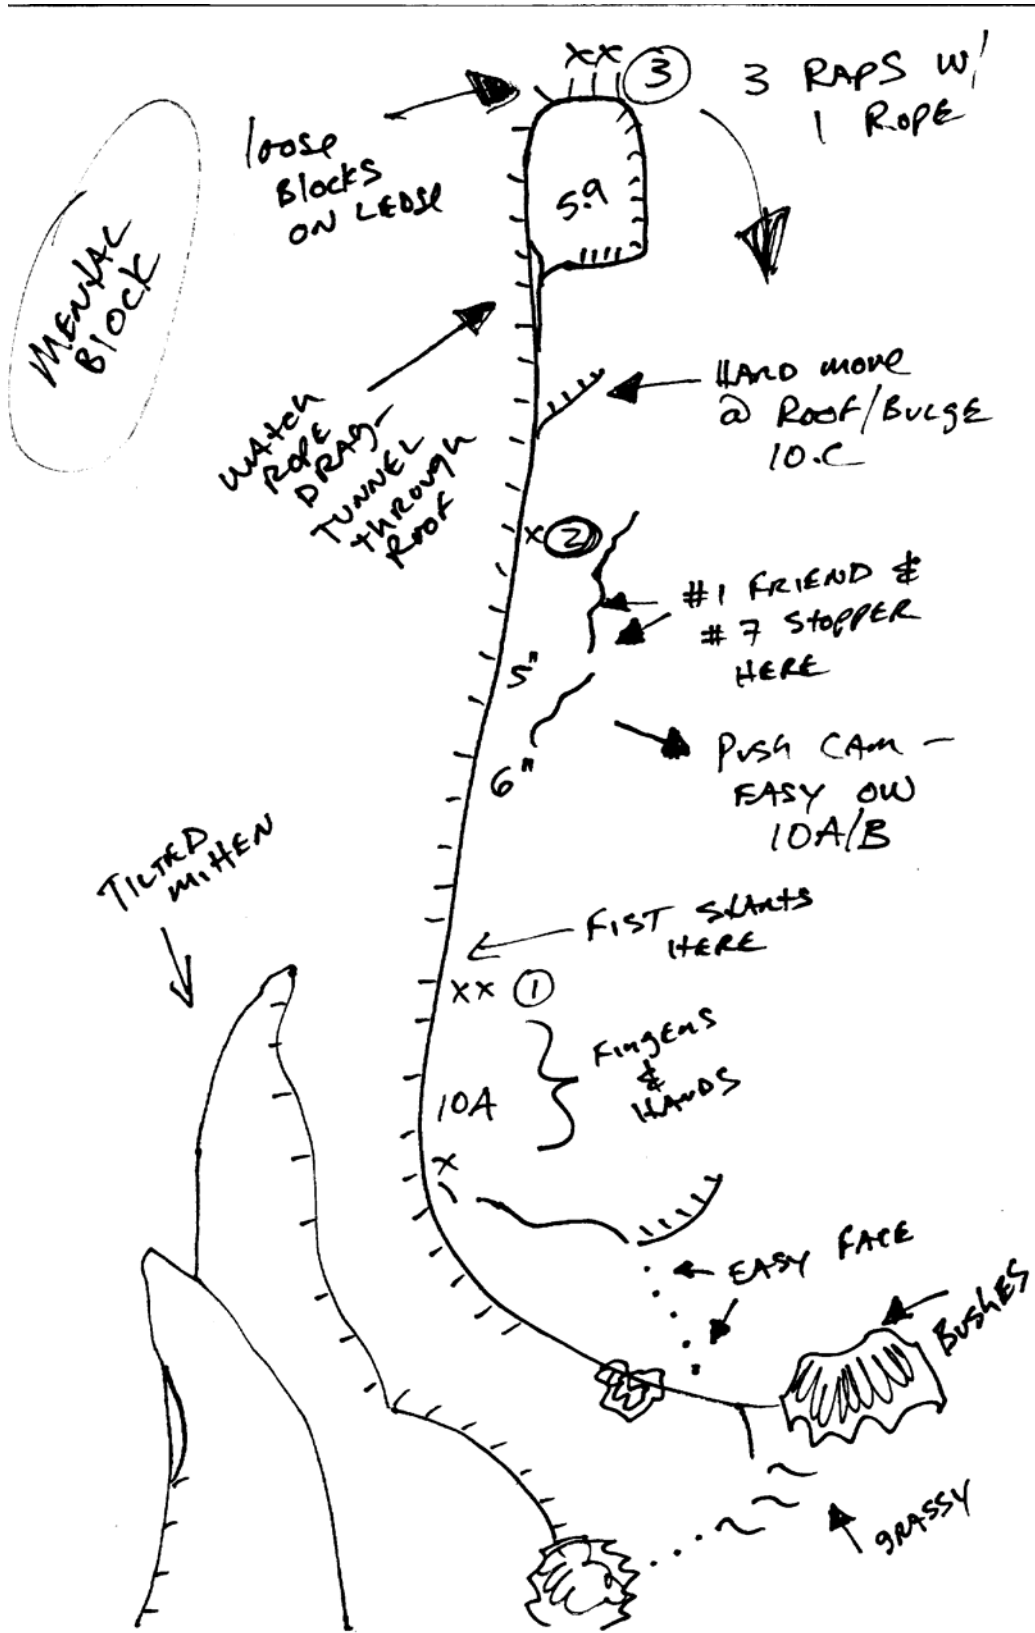 xx ③
3 RAPS W/
1 ROPE
loose
BlOCKS
ON LEDGE
5.9
MENTAL
BLOCK
WATCH
ROPE
DRAG-
TUNNEL
through
ROOF
HARD move
@ ROOF/BULGE
10.C
x ②
#1 FRIEND &
#7 StOPPER
HERE
5"
6"
PUSH CAM –
EASY OW
10A/B
TILTED
MittEN
FIST StARtS
HERE
xx ①
FingERS
&
HANDS
10A
x
EASY FACE
BUSHES
gRASSY